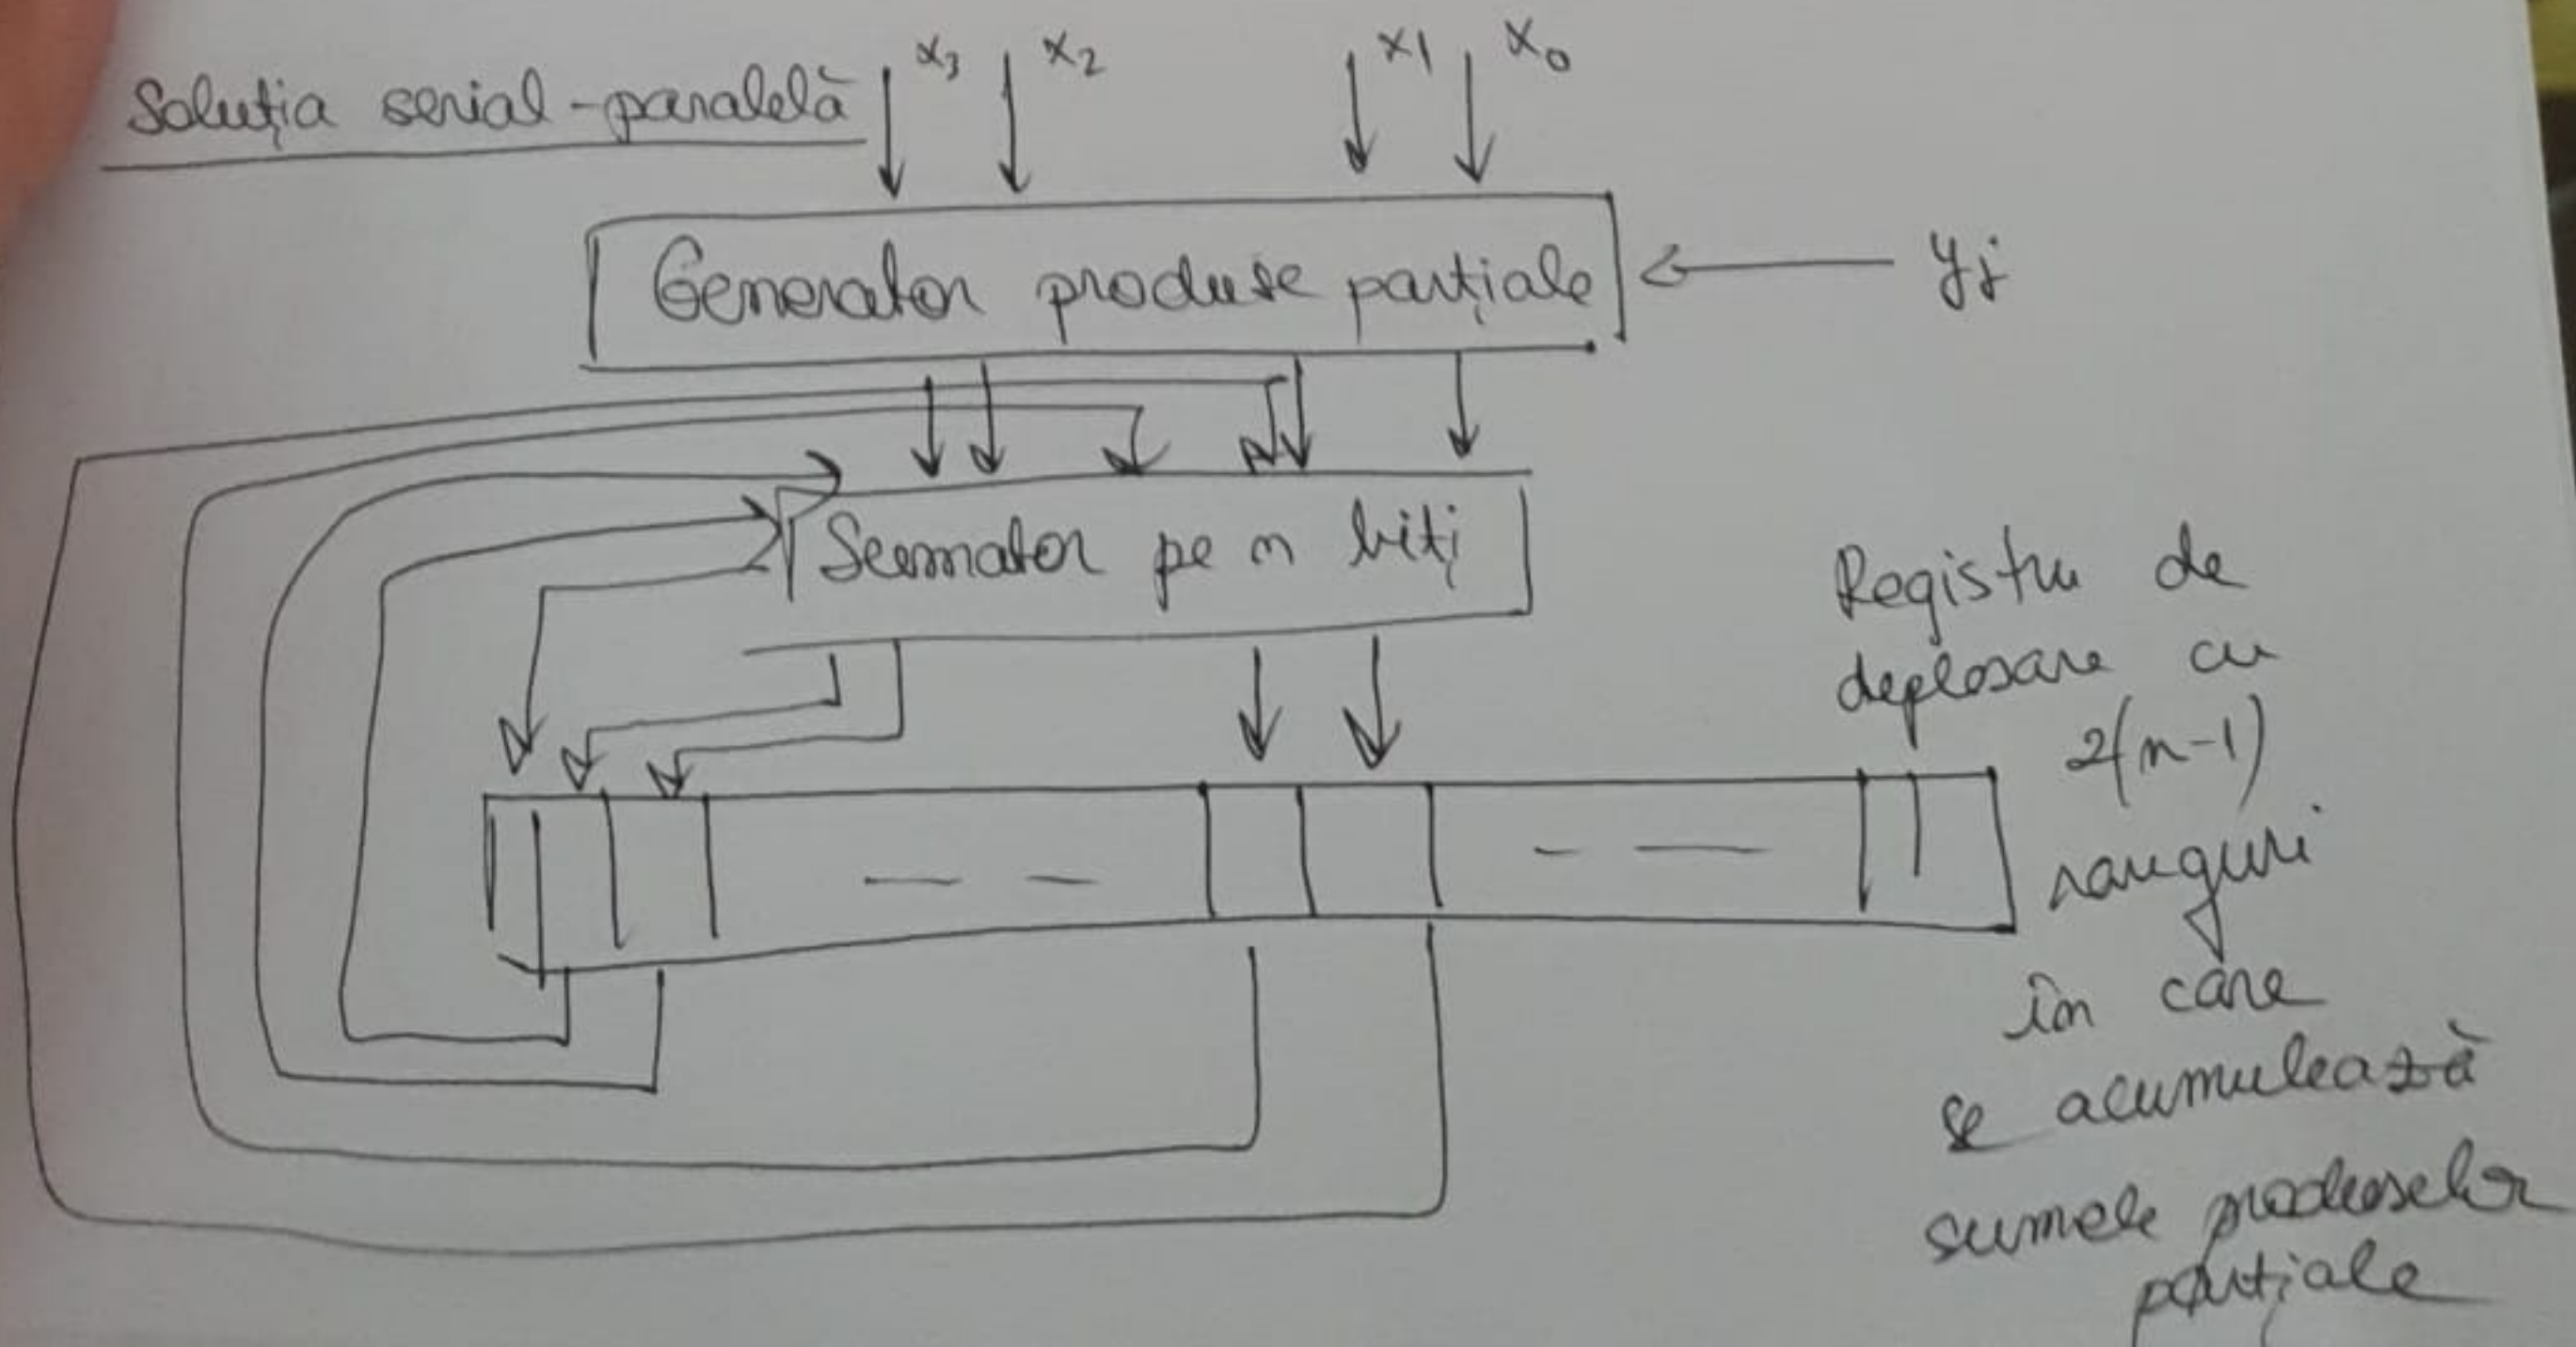 Soluția serial-paralelă
x3 x2 x1 x0
Generator produse parțiale
yj
Sumator pe n biți
Registru de
deplasare cu
2(n-1)
ranguri
în care
se acumulează
sumele produselor
parțiale